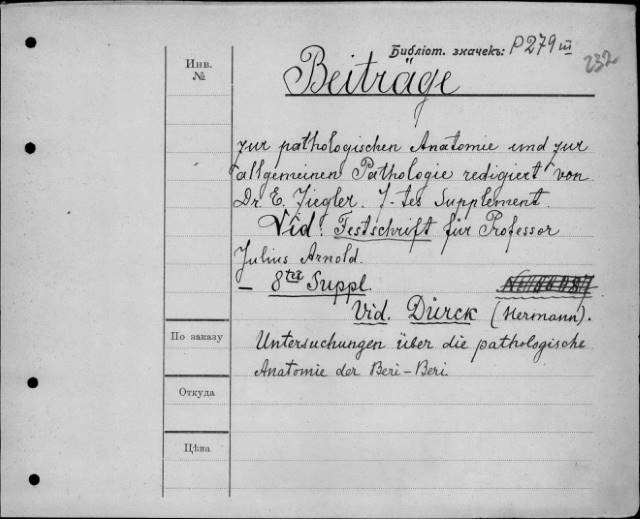 Библіот. значекъ: P279 III
232
Инв.
№
Beiträge
zur pathologischen Anatomie und zur
allgemeinen Pathologie redigiert von
Dr. E. Ziegler. 7-tes Supplement.
Vid. Festschrift für Professor
Julius Arnold.
— 8tes Suppl.
Vid. Dürck (Hermann).
По заказу
Untersuchungen über die pathologische
Anatomie der Beri-Beri.
Откуда
Цѣна